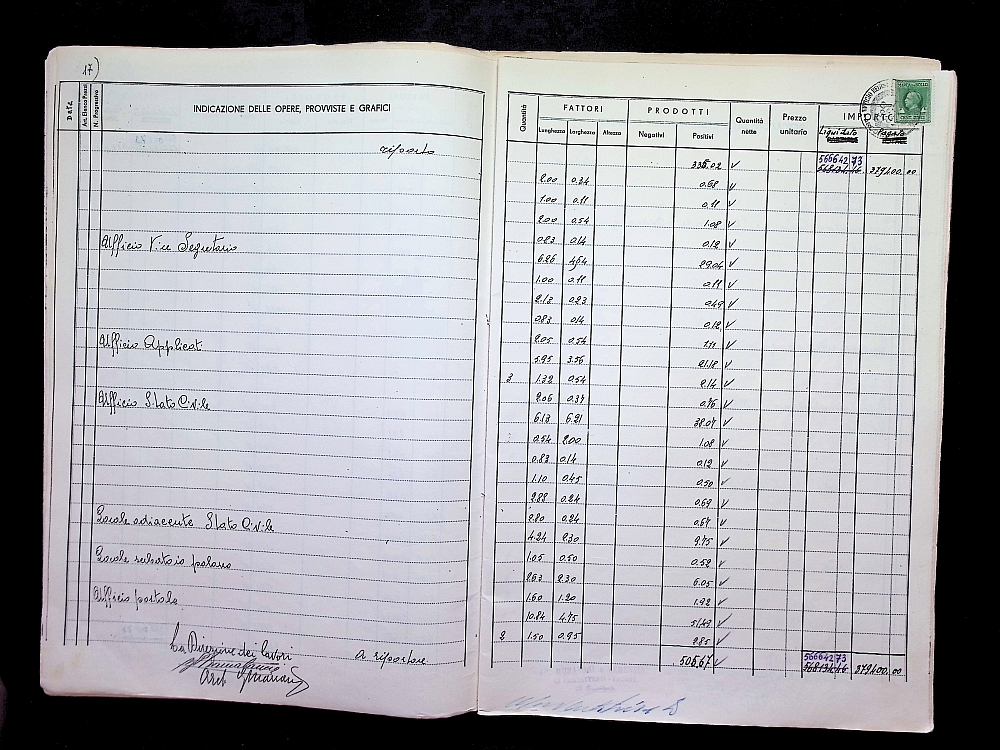 17)
Data
Art. Elenco Prezzi
N. Progressivo
INDICAZIONE DELLE OPERE, PROVVISTE E GRAFICI
riporto
Ufficio Vice Segretario
Ufficio Applicat
Ufficio Stato Civile
Locale adiacente Stato Civile
Locale
Ufficio postale
La Direzione dei lavori
Arch
a riportare
Quantità
FATTORI
PRODOTTI
Quantità nette
Prezzo unitario
IMPORTO
Lunghezza Larghezza Altezza
Negativi Positivi
Liquidato Pagato
02 V 566642,73
379400.00
2.00 0.34 0.68 V
1.00 0.11 0.11 V
2.00 0.54 1.08 V
0.83 0.14 0.12 V
6.26 4.64 29.04 V
1.00 0.11 0.11 V
2.13 0.23 0.49 V
0.83 0.14 0.12 V
2.05 0.54 1.11 V
5.95 3.56 21.18 V
3 1.32 0.54 2.14 V
2.06 0.37 0.76 V
6.13 6.21 38.07 V
0.54 2.00 1.08 V
0.83 0.14 0.12 V
1.10 0.45 0.50 V
2.88 0.24 0.69 V
2.80 0.24 0.67 V
4.24 2.30 9.75 V
1.05 0.50 0.52 V
2.63 2.30 6.05 V
1.60 1.20 1.92 V
10.84 4.75 51.49 V
2 1.50 0.95 2.85 V
505.67 V 566642,73
379400.00